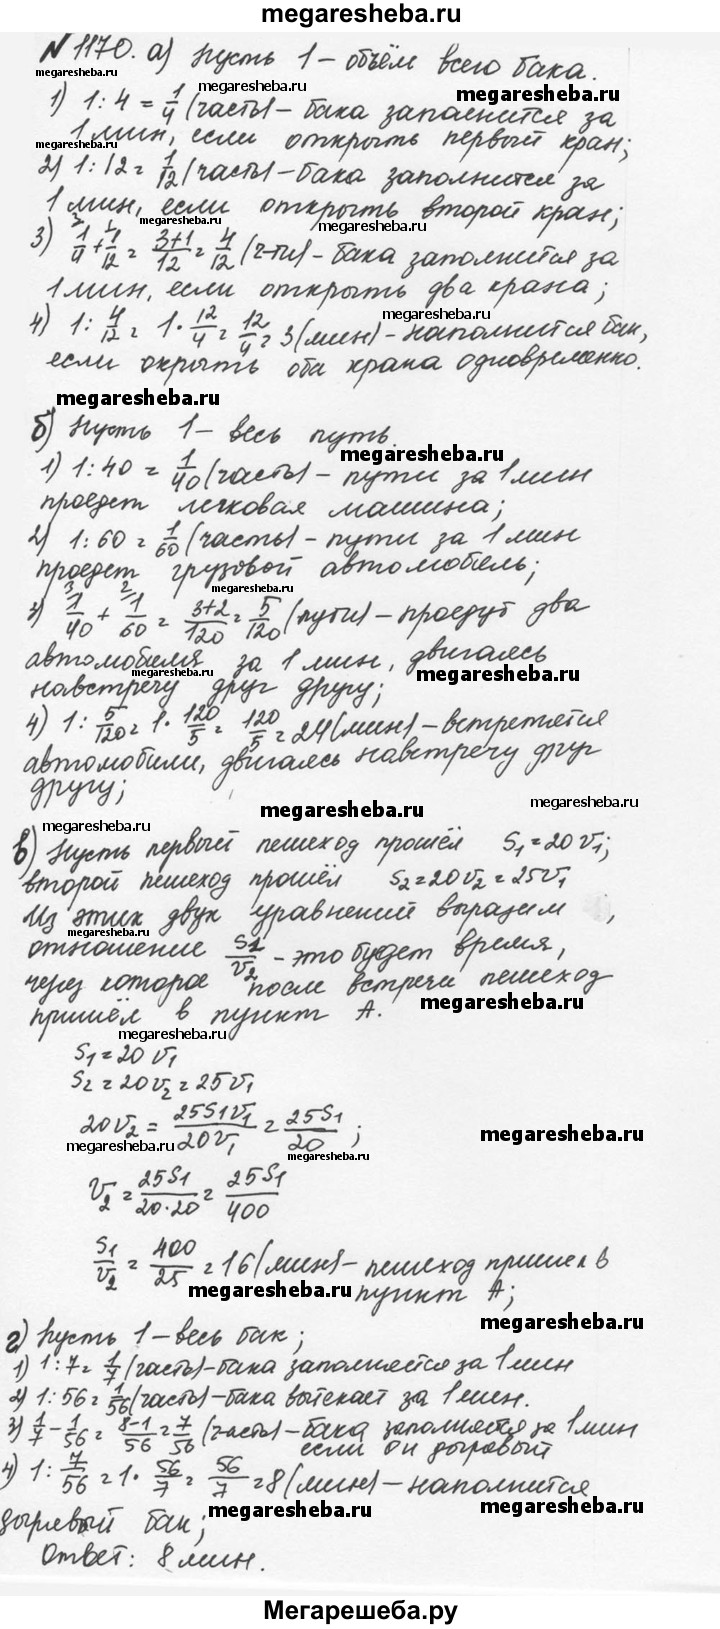 megaresheba.ru
№ 1170. а) Пусть 1 – объём всего бака.
megaresheba.ru
megaresheba.ru
megaresheba.ru
1) 1:4 = 1/4 (часть) – бака заполнится за
1 мин, если открыть первый кран;
megaresheba.ru
2) 1:12 = 1/12 (часть) – бака заполнится за
1 мин, если открыть второй кран;
megaresheba.ru
3) 1/4 + 1/12 = 3+1/12 = 4/12 (ч-ти) – бака заполнится за
1 мин, если открыть два крана;
4) 1: 4/12 = 1 · 12/4 = 12/4 = 3 (мин) – наполнится бак,
если окрыть оба крана одновременно.
megaresheba.ru
б) Пусть 1 – весь путь.
megaresheba.ru
1) 1:40 = 1/40 (часть) – пути за 1 мин
проедет легковая машина;
2) 1:60 = 1/60 (часть) – пути за 1 мин
проедет грузовой автомобиль;
megaresheba.ru
3) 1/40 + 1/60 = 3+2/120 = 5/120 (пути) – проедут два
автомобиля за 1 мин, двигаясь
megaresheba.ru
megaresheba.ru
навстречу друг другу;
4) 1: 5/120 = 1 · 120/5 = 120/5 = 24 (мин) – встретятся
автомобили, двигаясь навстречу друг
другу;
megaresheba.ru
megaresheba.ru
megaresheba.ru
в) Пусть первый пешеход прошёл S1 = 20 v1;
второй пешеход прошёл S2 = 20v2 = 25v1
Из этих двух уравнений выразим ,
megaresheba.ru
отношение S1/v2 – это будет время,
через которое после встречи пешеход
megaresheba.ru
пришёл в пункт А.
megaresheba.ru
S1 = 20 v1
S2 = 20v2 = 25v1
20v2 = 25S1v1/20v1 = 25S1/20 ;
megaresheba.ru
megaresheba.ru
megaresheba.ru
v2 = 25S1/20·20 = 25S1/400
S1/v2 = 400/25 = 16 (мин) – пешеход пришел в
megaresheba.ru
пункт А;
г) Пусть 1 – весь бак;
megaresheba.ru
1) 1:7 = 1/7 (часть) – бака заполняется за 1 мин
2) 1:56 = 1/56 (часть) – бака вытекает за 1 мин.
3) 1/7 – 1/56 = 8-1/56 = 7/56 (часть) – бака заполняется за 1 мин
если он дырявый
4) 1: 7/56 = 1 · 56/7 = 56/7 = 8 (мин) – наполнится
megaresheba.ru
megaresheba.ru
дырявый бак;
Ответ: 8 мин.
Мегарешеба.ру